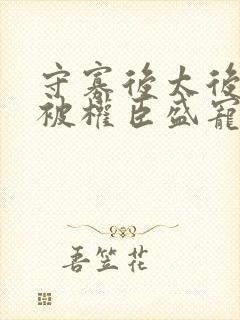 守寡後太後
被權臣盛寵
吾笠花